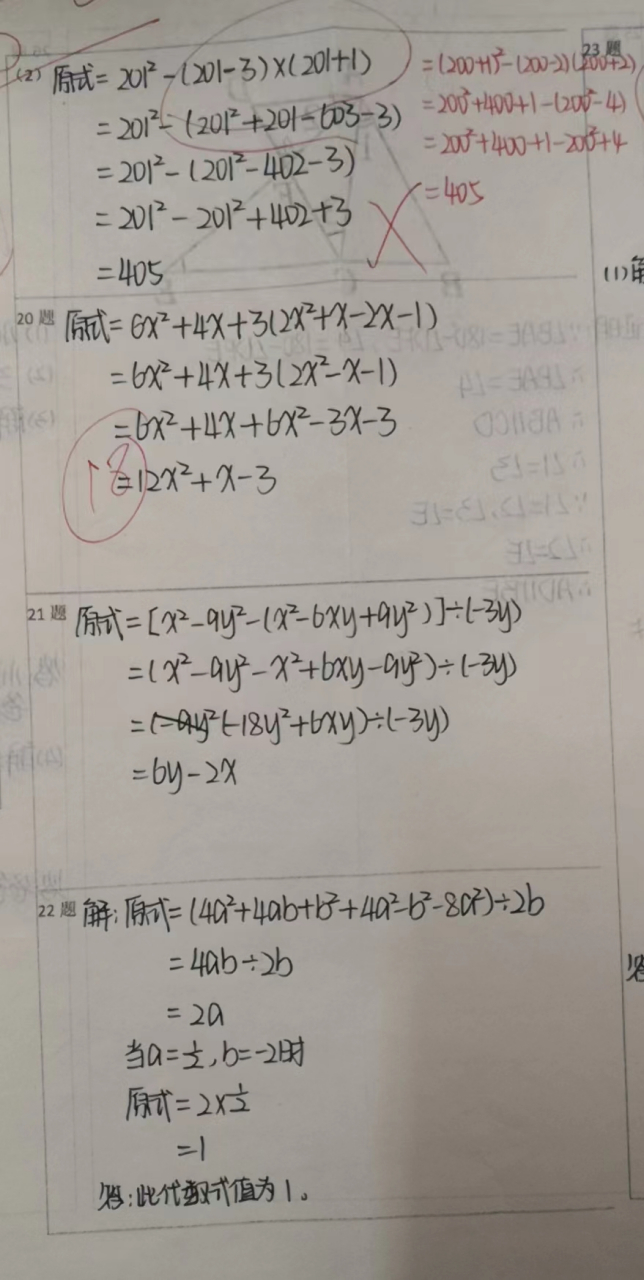 (2) 原式=201²-(201-3)×(201+1)
=201²-(201²+201-603-3)
=201²-(201²-402-3)
=201²-201²+402+3
=405
=(200+1)²-(200-2)(200+2)
=200²+400+1-(200²-4)
=200²+400+1-200²+4
=405
23 题
(1)解
20 题 原式=6x²+4x+3(2x²+x-2x-1)
=6x²+4x+3(2x²-x-1)
=6x²+4x+6x²-3x-3
=12x²+x-3
18
21 题 原式=[x²-9y²-(x²-6xy+9y²)]÷(-3y)
=(x²-9y²-x²+6xy-9y²)÷(-3y)
=(-18y²+6xy)÷(-3y)
=6y-2x
22 题 解:原式=(4a²+4ab+b²+4a²-b²-8a²)÷2b
=4ab÷2b
=2a
当a=½,b=-2时
原式=2×½
=1
答:此代数式值为1。